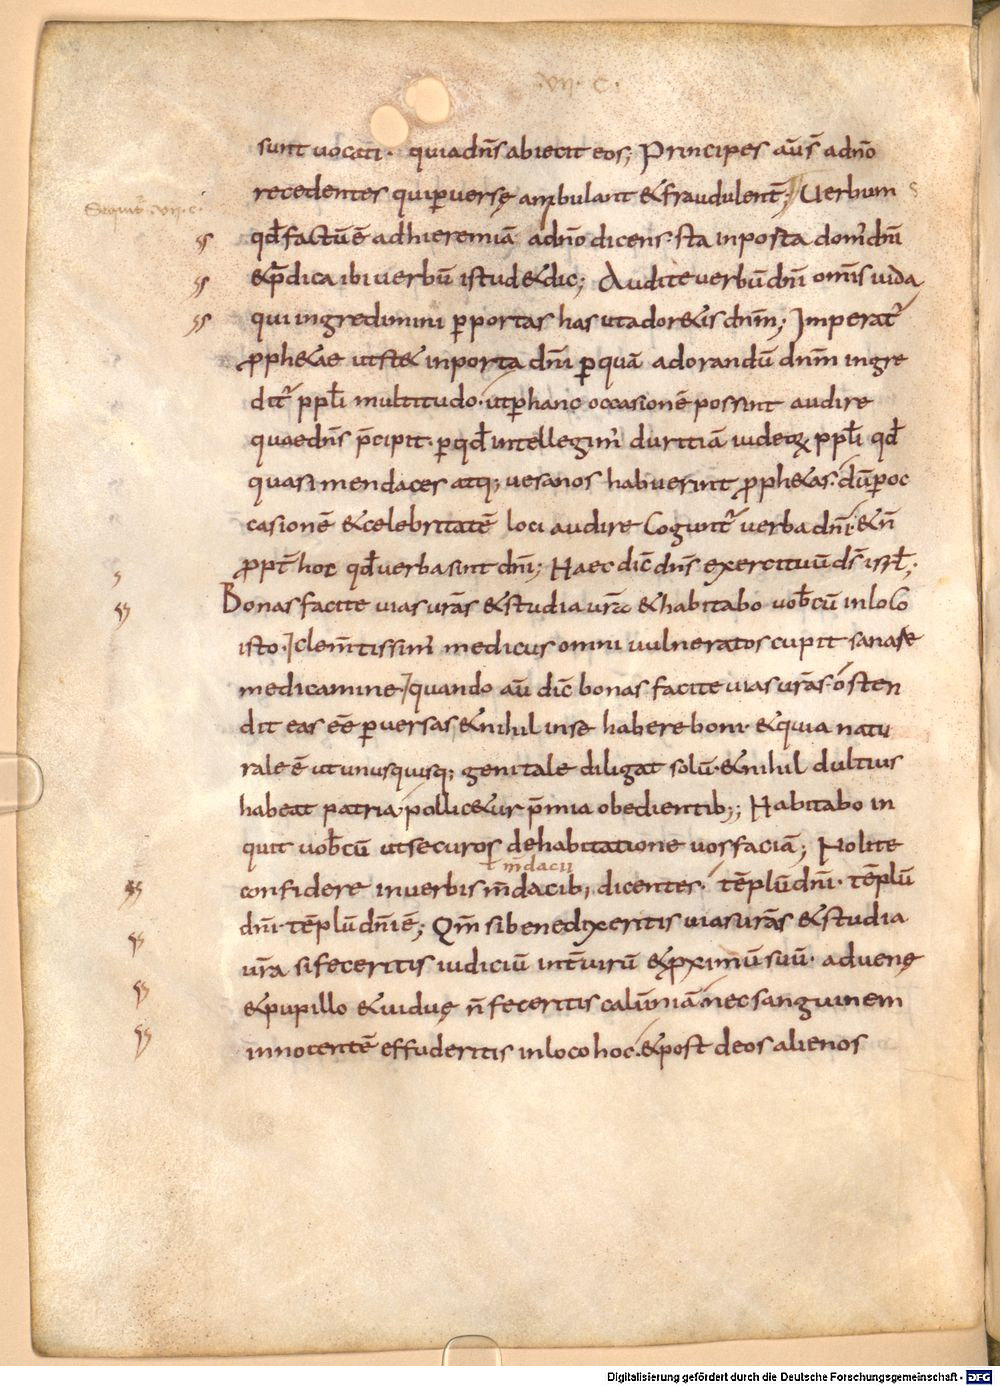 ·VII· C·
sunt uocati· quia dn̄s abiecit eos; Principes aūs̄ a dn̄o
recedentes qui ꝑuersę ambulant & fraudulent̄; Uerbum
Sequit̄ ·VII· c·
qđ factū ē ad hieremiā a dn̄o dicens· sta in porta dom' dn̄i
& p̄dica ibi uerbū istud & dic; Audite uerbū dn̄i om̄is iuda
qui ingredimini ꝑ portas has ut ador&is dn̄m; Imperat᷑
ꝓph&ae ut st& in porta dn̄i ꝑ quā adorandū dn̄m ingre
dit᷑ ppłi multitudo· ut ꝑ hanc occasionē possint audire
quae dn̄s p̄cipit· ꝑ qđ intellegim' duritiā iudeoꝝ ppłi qđ
quasi mendaces atq; uesanos habuerint ꝓph&as· dū ꝑ oc
casionē & celebritatē loci audire coguntᷣ uerba dn̄i· & n̄
ꝓpt̄ hoc qđ uerba sint dn̄i; Haec dic̄ dn̄s exercituū ds̄ isrł;
Bonas facite uias urās & studia ur̄a & habitabo uob̄cū in loco
isto· clem̄tissim' medicus omni uulneratos cupit sanare
medicamine· quando aū dic̄ bonas facite uias urās· osten
dit eas eē ꝑuersas & nihil in se habere boni· & quia natu
rale ē ut unusquisq; genitale diligat solū· & nihil dulcius
habeat patria· pollic&ur p̄mia obedientib;; Habitabo in
quit uob̄cū ut securos de habitatione uos faciā; Nolite
ł m̄dacii
confidere in uerbis m̄dacib; dicentes· tēplū dn̄i· tēplū
dn̄i· tēplū dn̄i ē; Qm̄ si benedixeritis uias urās & studia
ur̄a si feceritis iudiciū int̄ uirū & ꝓximū suū· aduenę
& pupillo & uiduę n̄ feceritis calūniā· nec sanguinem
innocentē effuderitis in loco hoc· & post deos alienos
Digitalisierung gefördert durch die Deutsche Forschungsgemeinschaft · DFG